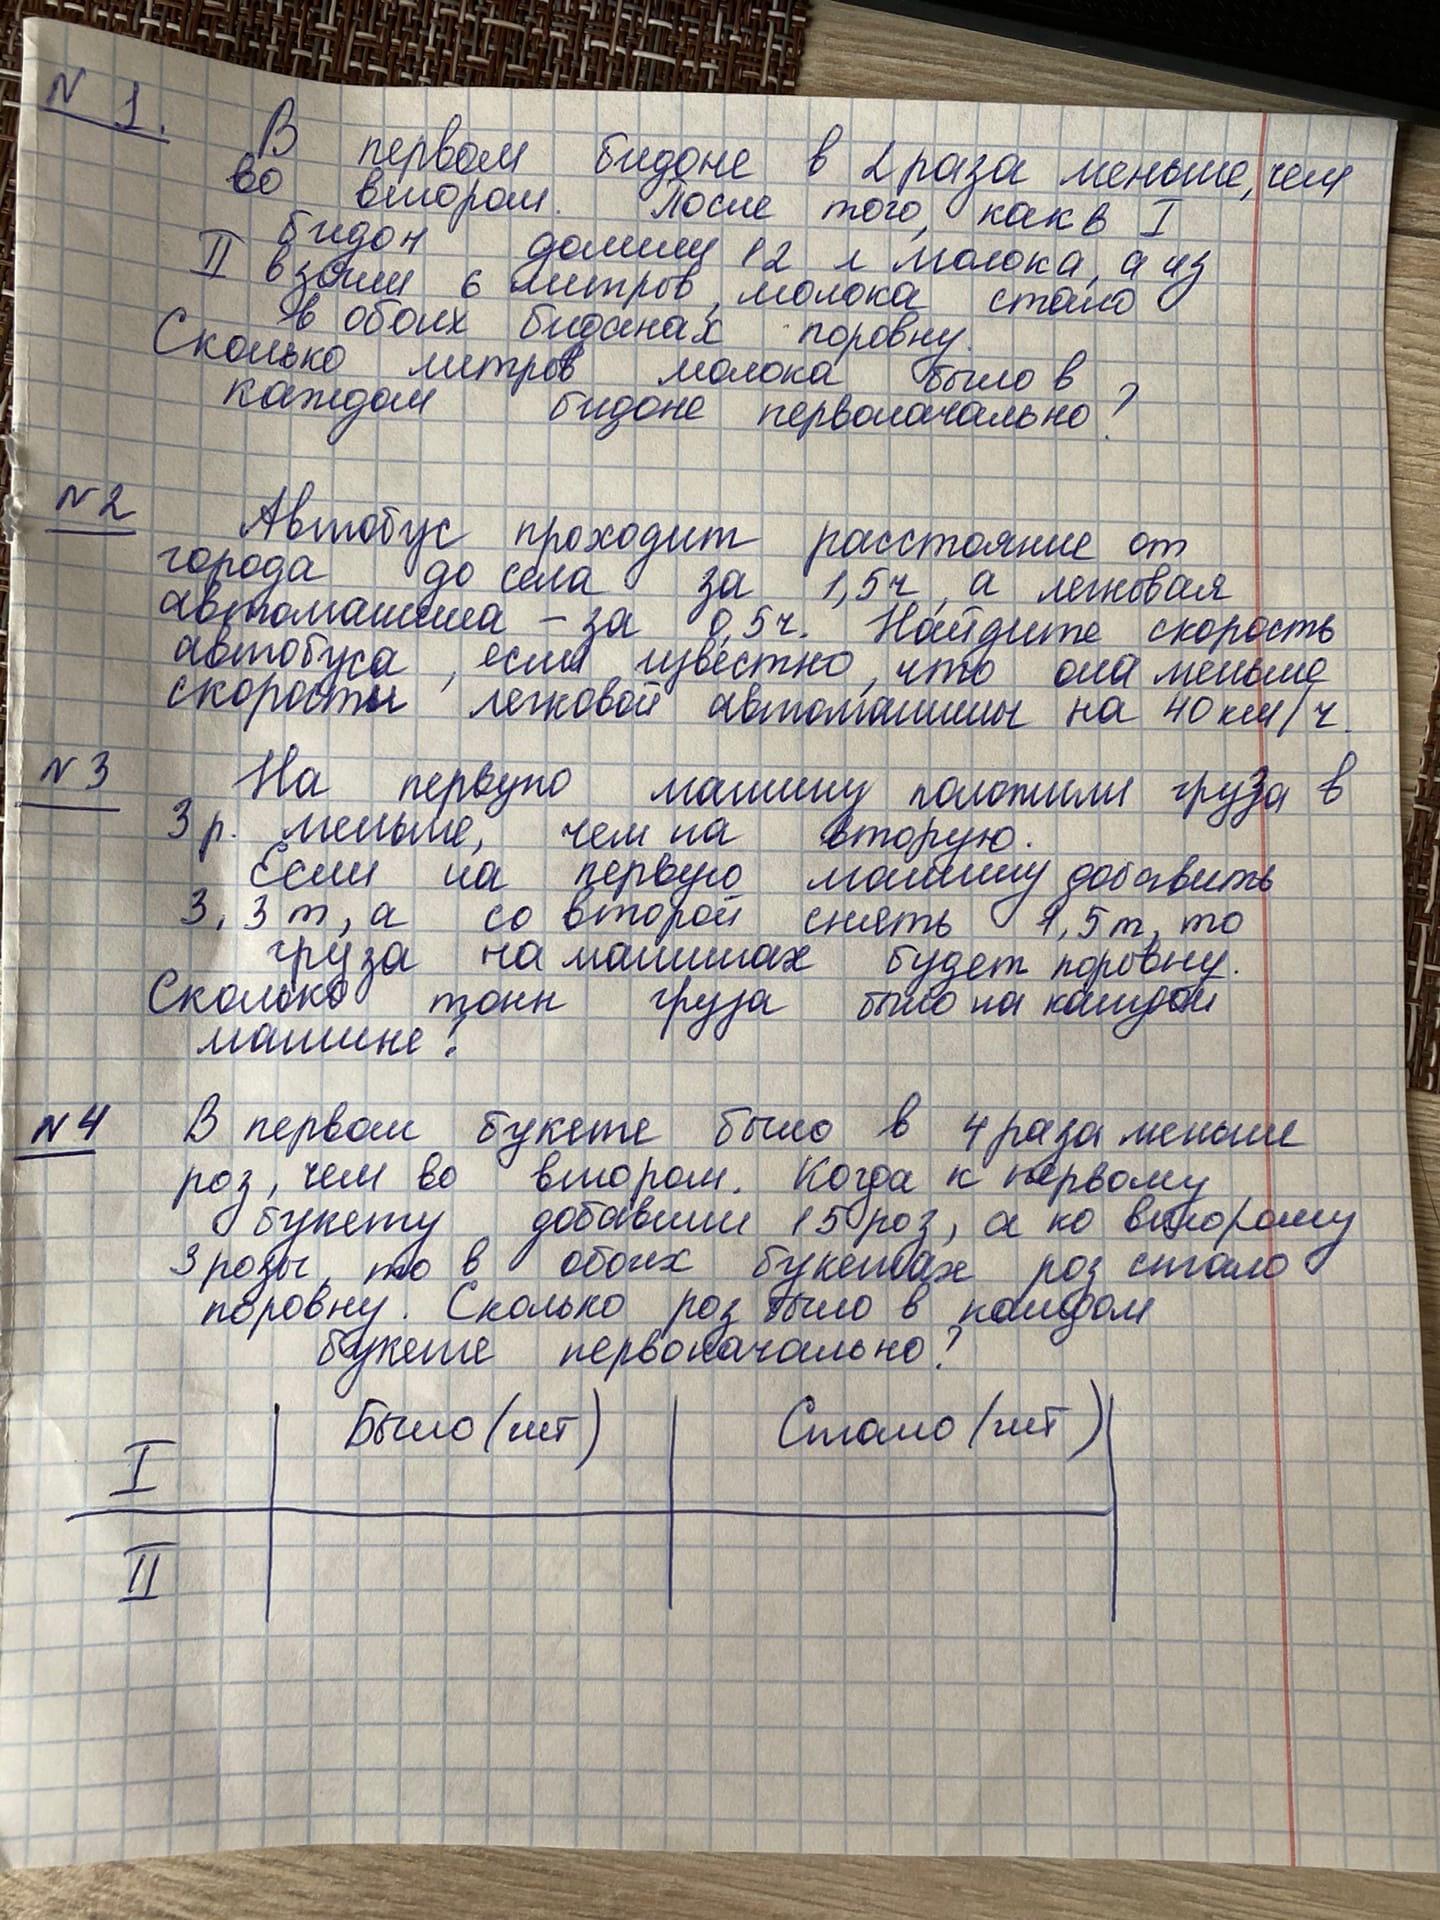 N 1.
В первом бидоне в 2 раза меньше, чем
во втором. После того, как в I
бидон долили 12 л молока, а из
II взяли 6 литров, молока стало
в обоих бидонах поровну.
Сколько литров молока было в
каждом бидоне первоначально?
N 2
Автобус проходит расстояние от
города до села за 1,5ч, а легковая
автомашина – за 0,5ч. Найдите скорость
автобуса, если известно, что она меньше
скорости легковой автомашины на 40 км/ч.
N 3
На первую машину положили груза в
3 р. меньше, чем на вторую.
Если на первую машину добавить
3,3 т, а со второй снять 1,5 т, то
груза на машинах будет поровну.
Сколько тонн груза было на каждой
машине?
N 4
В первом букете было в 4 раза меньше
роз, чем во втором. Когда к первому
букету добавили 15 роз, а ко второму
3 розы, то в обоих букетах роз стало
поровну. Сколько роз было в каждом
букете первоначально?
Было (шт) Стало (шт)
I
II